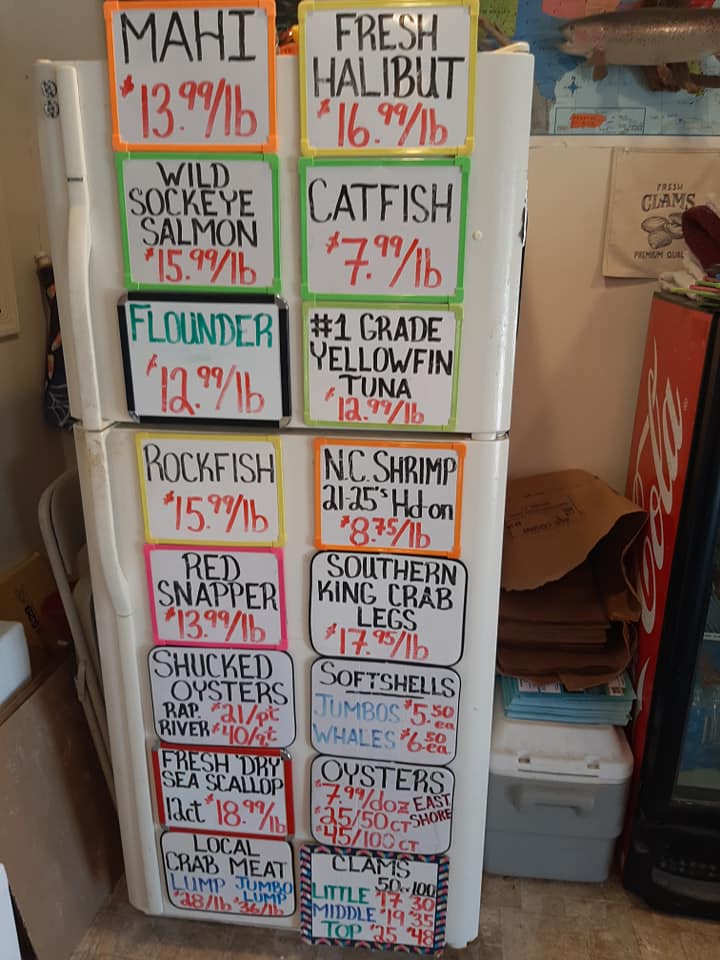 MAHI
$13.99/lb
FRESH
HALIBUT
$16.99/lb
WILD
SOCKEYE
SALMON
$15.99/lb
CATFISH
$7.99/lb
FLOUNDER
$12.99/lb
#1 GRADE
YELLOWFIN
TUNA
$12.99/lb
ROCKFISH
$15.99/lb
N.C. SHRIMP
21-25's Hd-on
$8.75/lb
RED
SNAPPER
$13.99/lb
SOUTHERN
KING CRAB
LEGS
$17.95/lb
SHUCKED
OYSTERS
RAP. $21/pt
RIVER $40/qt
SOFTSHELLS
JUMBOS $5.50 ea
WHALES $6.50 ea.
FRESH "DRY"
SEA SCALLOP
12ct $18.99/lb
OYSTERS
$7.99/doz EAST
$25/50 CT SHORE
$45/100 CT
LOCAL
CRAB MEAT
LUMP JUMBO
LUMP
$28/lb $36/lb
CLAMS
50ct 100
LITTLE $17 $30
MIDDLE $19 $35
TOP $25 $48
FRESH
CLAMS
PREMIUM QUAL
Cola